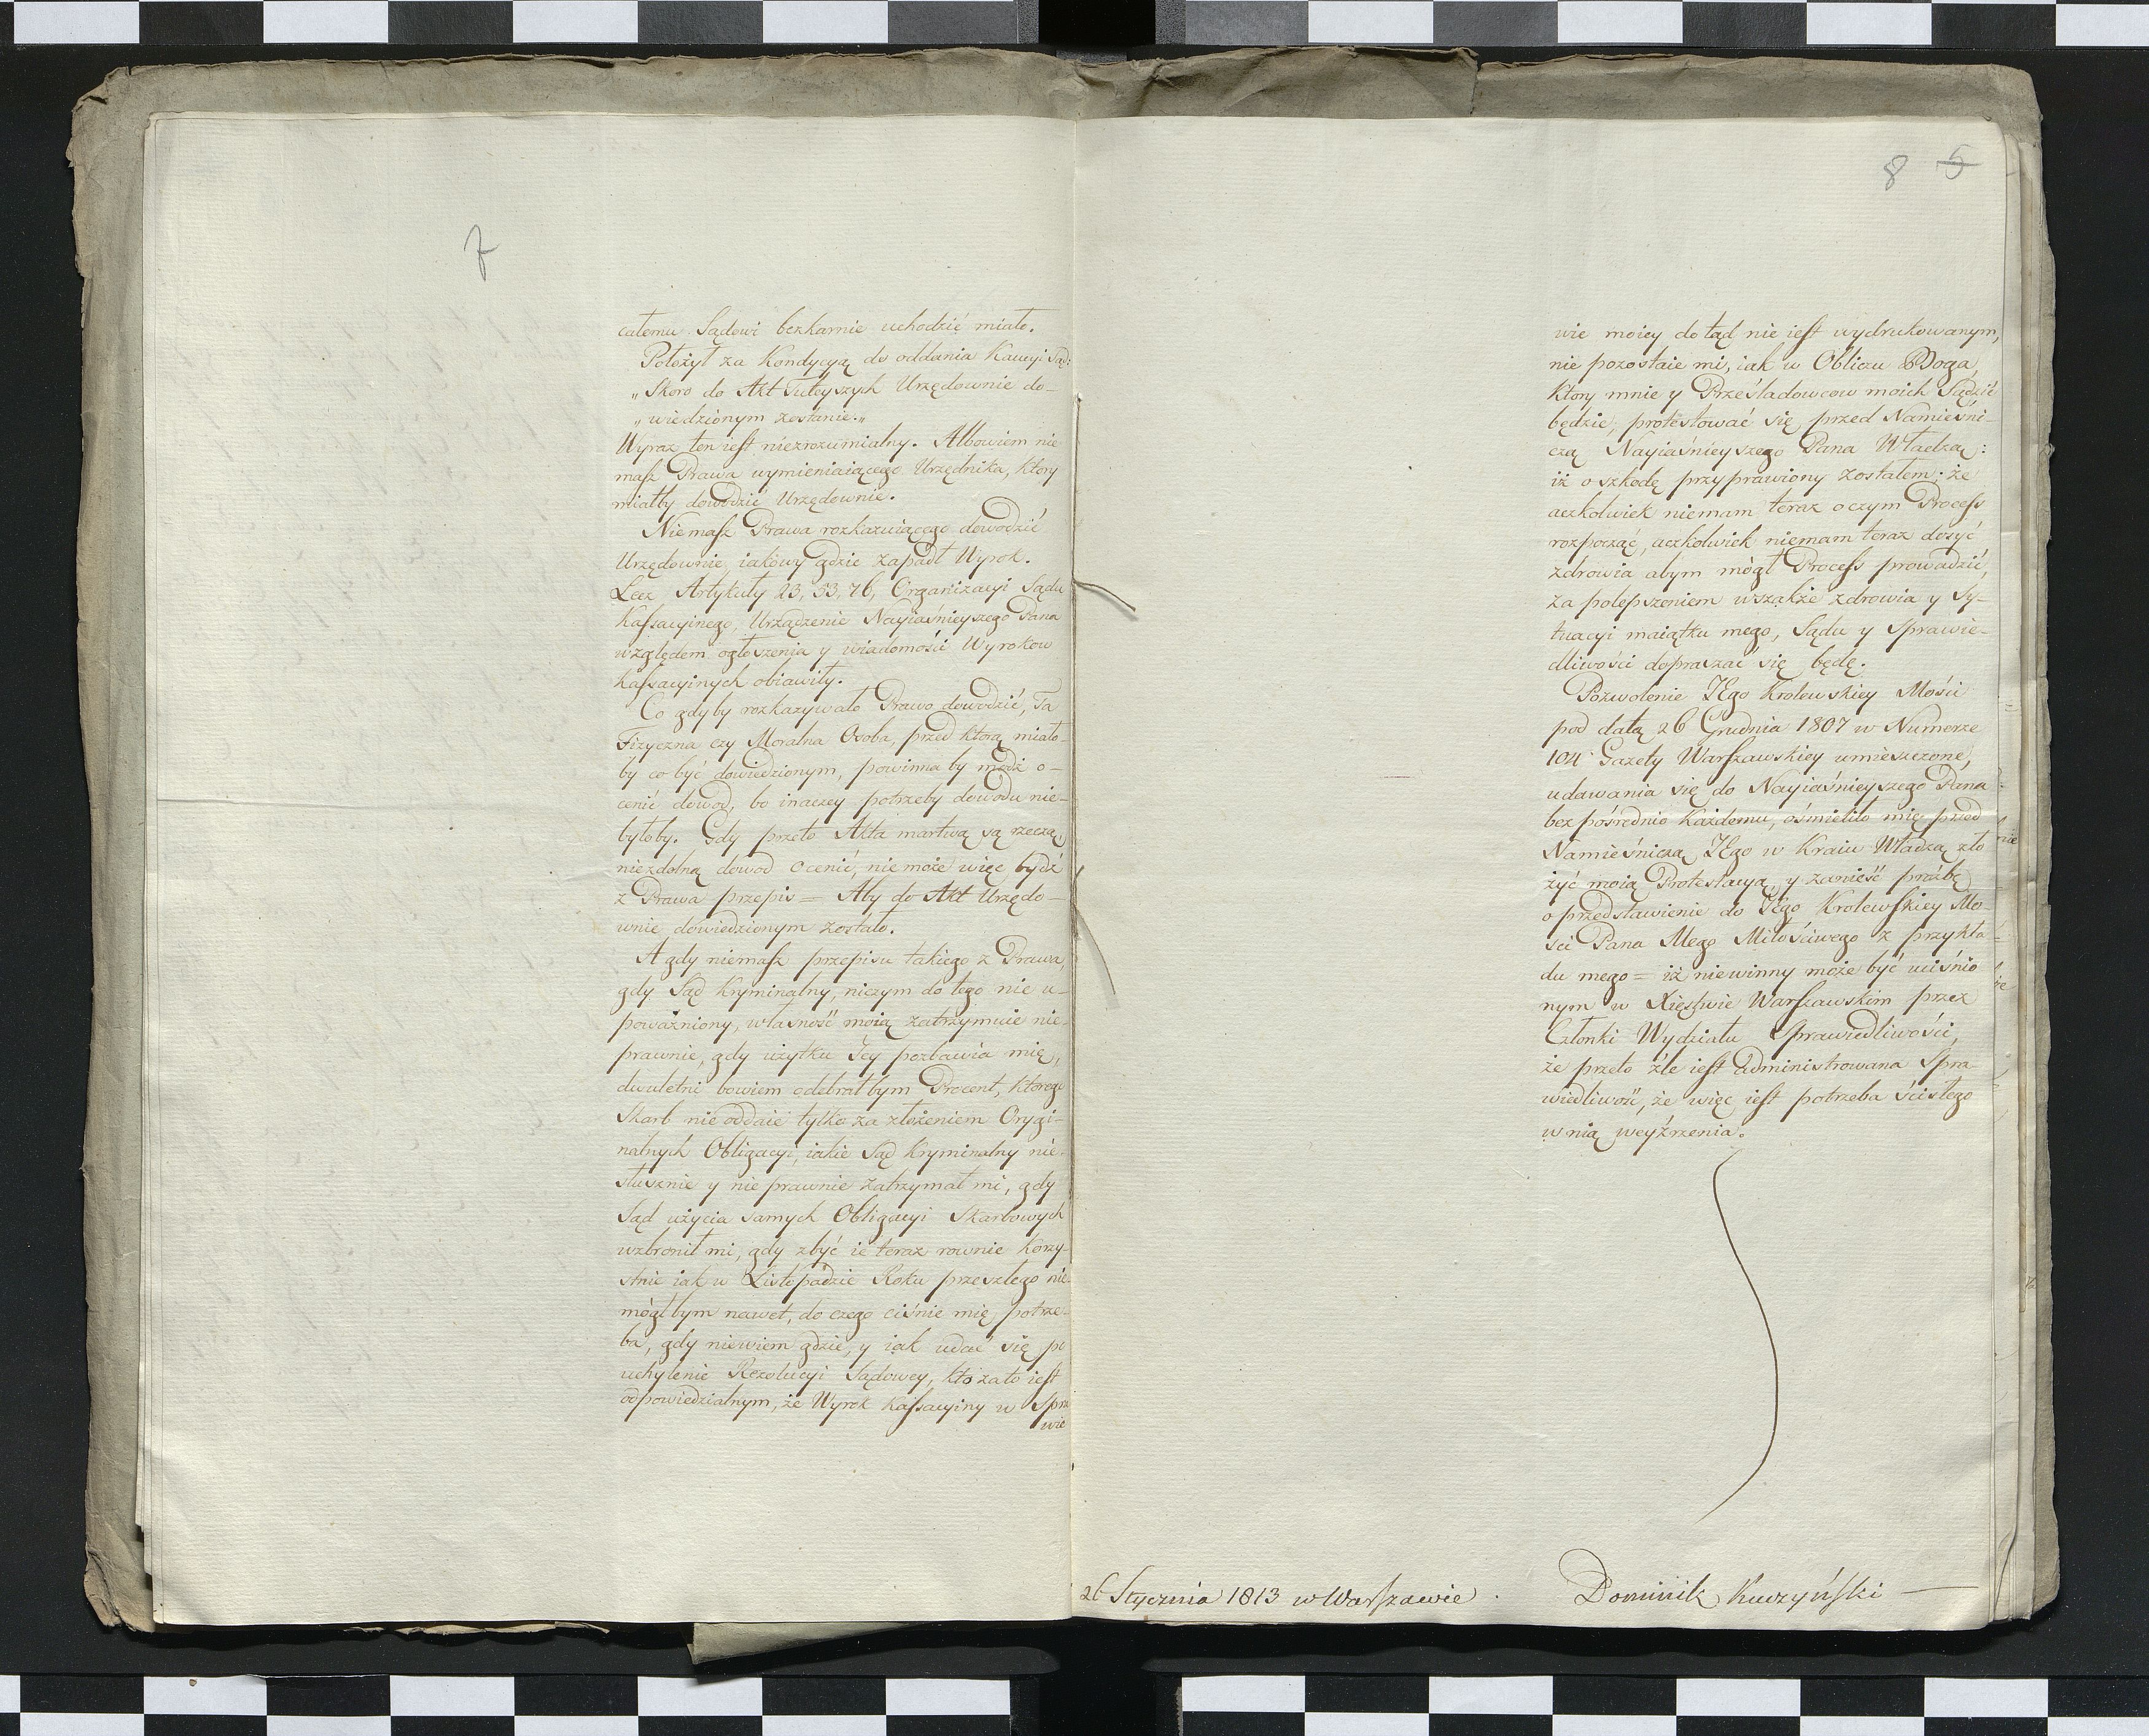 7
całemu Sądowi bezkarnie uchodzić miało.
Położył za Kondycyą do oddania Kaucyi Sąd:
„Skoro do Akt Tuteyszych Urzędownie do-
„wiedzionym zostanie.„
Wyraz ten iest niezrozumialny. Albowiem nie
masz Prawa wymieniaiącego Urzędnika, ktory
miałby dowodzić Urzędownie.
Niemasz Prawa rozkazuiącego dowodzić
Urzędownie, iakowy gdzie zapadł Wyrok.
Lecz Artykuły 23, 53, 76, Organizacyi Sądu
Kassacyinego, Urządzenie Nayiaśnieyszego Pana
względem ogłoszenia y wiadomości Wyrokow
kassacyinych obiawiły.
Co gdyby rozkazywało Prawo dowodzić, Ta
Fizyczna czy Moralna Osoba, przed ktorą miało-
by co być dowiedzionym, powinna by módz o-
cenić dowod, bo inaczey potrzeby dowodu nie-
byłoby. Gdy przeto Akta martwą są rzeczą,
niezdolną dowod ocenić, nie może więc bydź
z Prawa przepis = Aby do Akt Urzędo-
wnie dowiedzionym zostało.
A gdy niemasz przepisu takiego z Prawa,
gdy Sąd Kryminalny, niczym do tego nie u-
poważniony, własność moią zatrzymuie nie-
prawnie, gdy użytku Jey pozbawia mię,
dwuletni bowiem odebrałbym Procent, ktorego
Skarb nie oddaie tylko za złożeniem Orygi-
nalnych Obligacyi, iakie Sąd Kryminalny nie-
słusznie y nie prawnie zatrzymał mi, gdy
Sąd użycia samych Obligacyi Skarbowych
wzbronił mi, gdy zbyć ie teraz rownie korzy-
stnie iak w Listopadzie Roku przeszłego nie-
mógłbym nawet, do czego ciśnie mię potrze-
ba, gdy niewiem gdzie, y iak udać się po
uchylenie Rezolucyi Sądowey, kto zato iest
odpowiedzialnym, że Wyrok Kassacyiny w Spra
wie
8 5
wie moiey dotąd nie iest wydrukowanym,
nie pozostaie mi, iak w Obliczu Boga,
ktory mnie y Prześladowcow moich Sądzić
będzie, protestować się przed Namieśni
czą Nayiaśnieyszego Pana Władzą:
iż o szkodę przyprawiony zostałem; że
aczkolwiek niemam teraz o czym Process
rozpocząć, aczkolwiek niemam teraz dosyć
zdrowia abym mógł Process prowadzić,
za polepszeniem wszakże zdrowia y Sy-
tuacyi maiątku mego, Sądu y Sprawie-
dliwości dopraszać się będę.
Pozwolenie JEgo Krolewskiey Mości
pod datą 26 Grudnia 1807 w Numerze
104 Gazety Warszawskiey umieszczone,
udawania się do Nayiaśnieyszego Pana
bez pośrednio Każdemu, ośmieliło mię przed
Namieśniczą JEgo w Kraiu Władzą zło
żyć moią Protestacyą, y zanieść prośbę
o przedstawienie do JEgo Krolewskiey Mo-
ści Pana Mego Miłościwego z przykła-
du mego = iż niewinny może być uciśnio
nym w Xięstwie Warszawskim przez
Członki Wydziału Sprawiedliwości,
że przeto źle iest Administrowana Spra
wiedliwość, że więc iest potrzeba ścisłego
w nią weyźrzenia.
26 Stycznia 1813 w Warszawie
Dominik Kuczyński